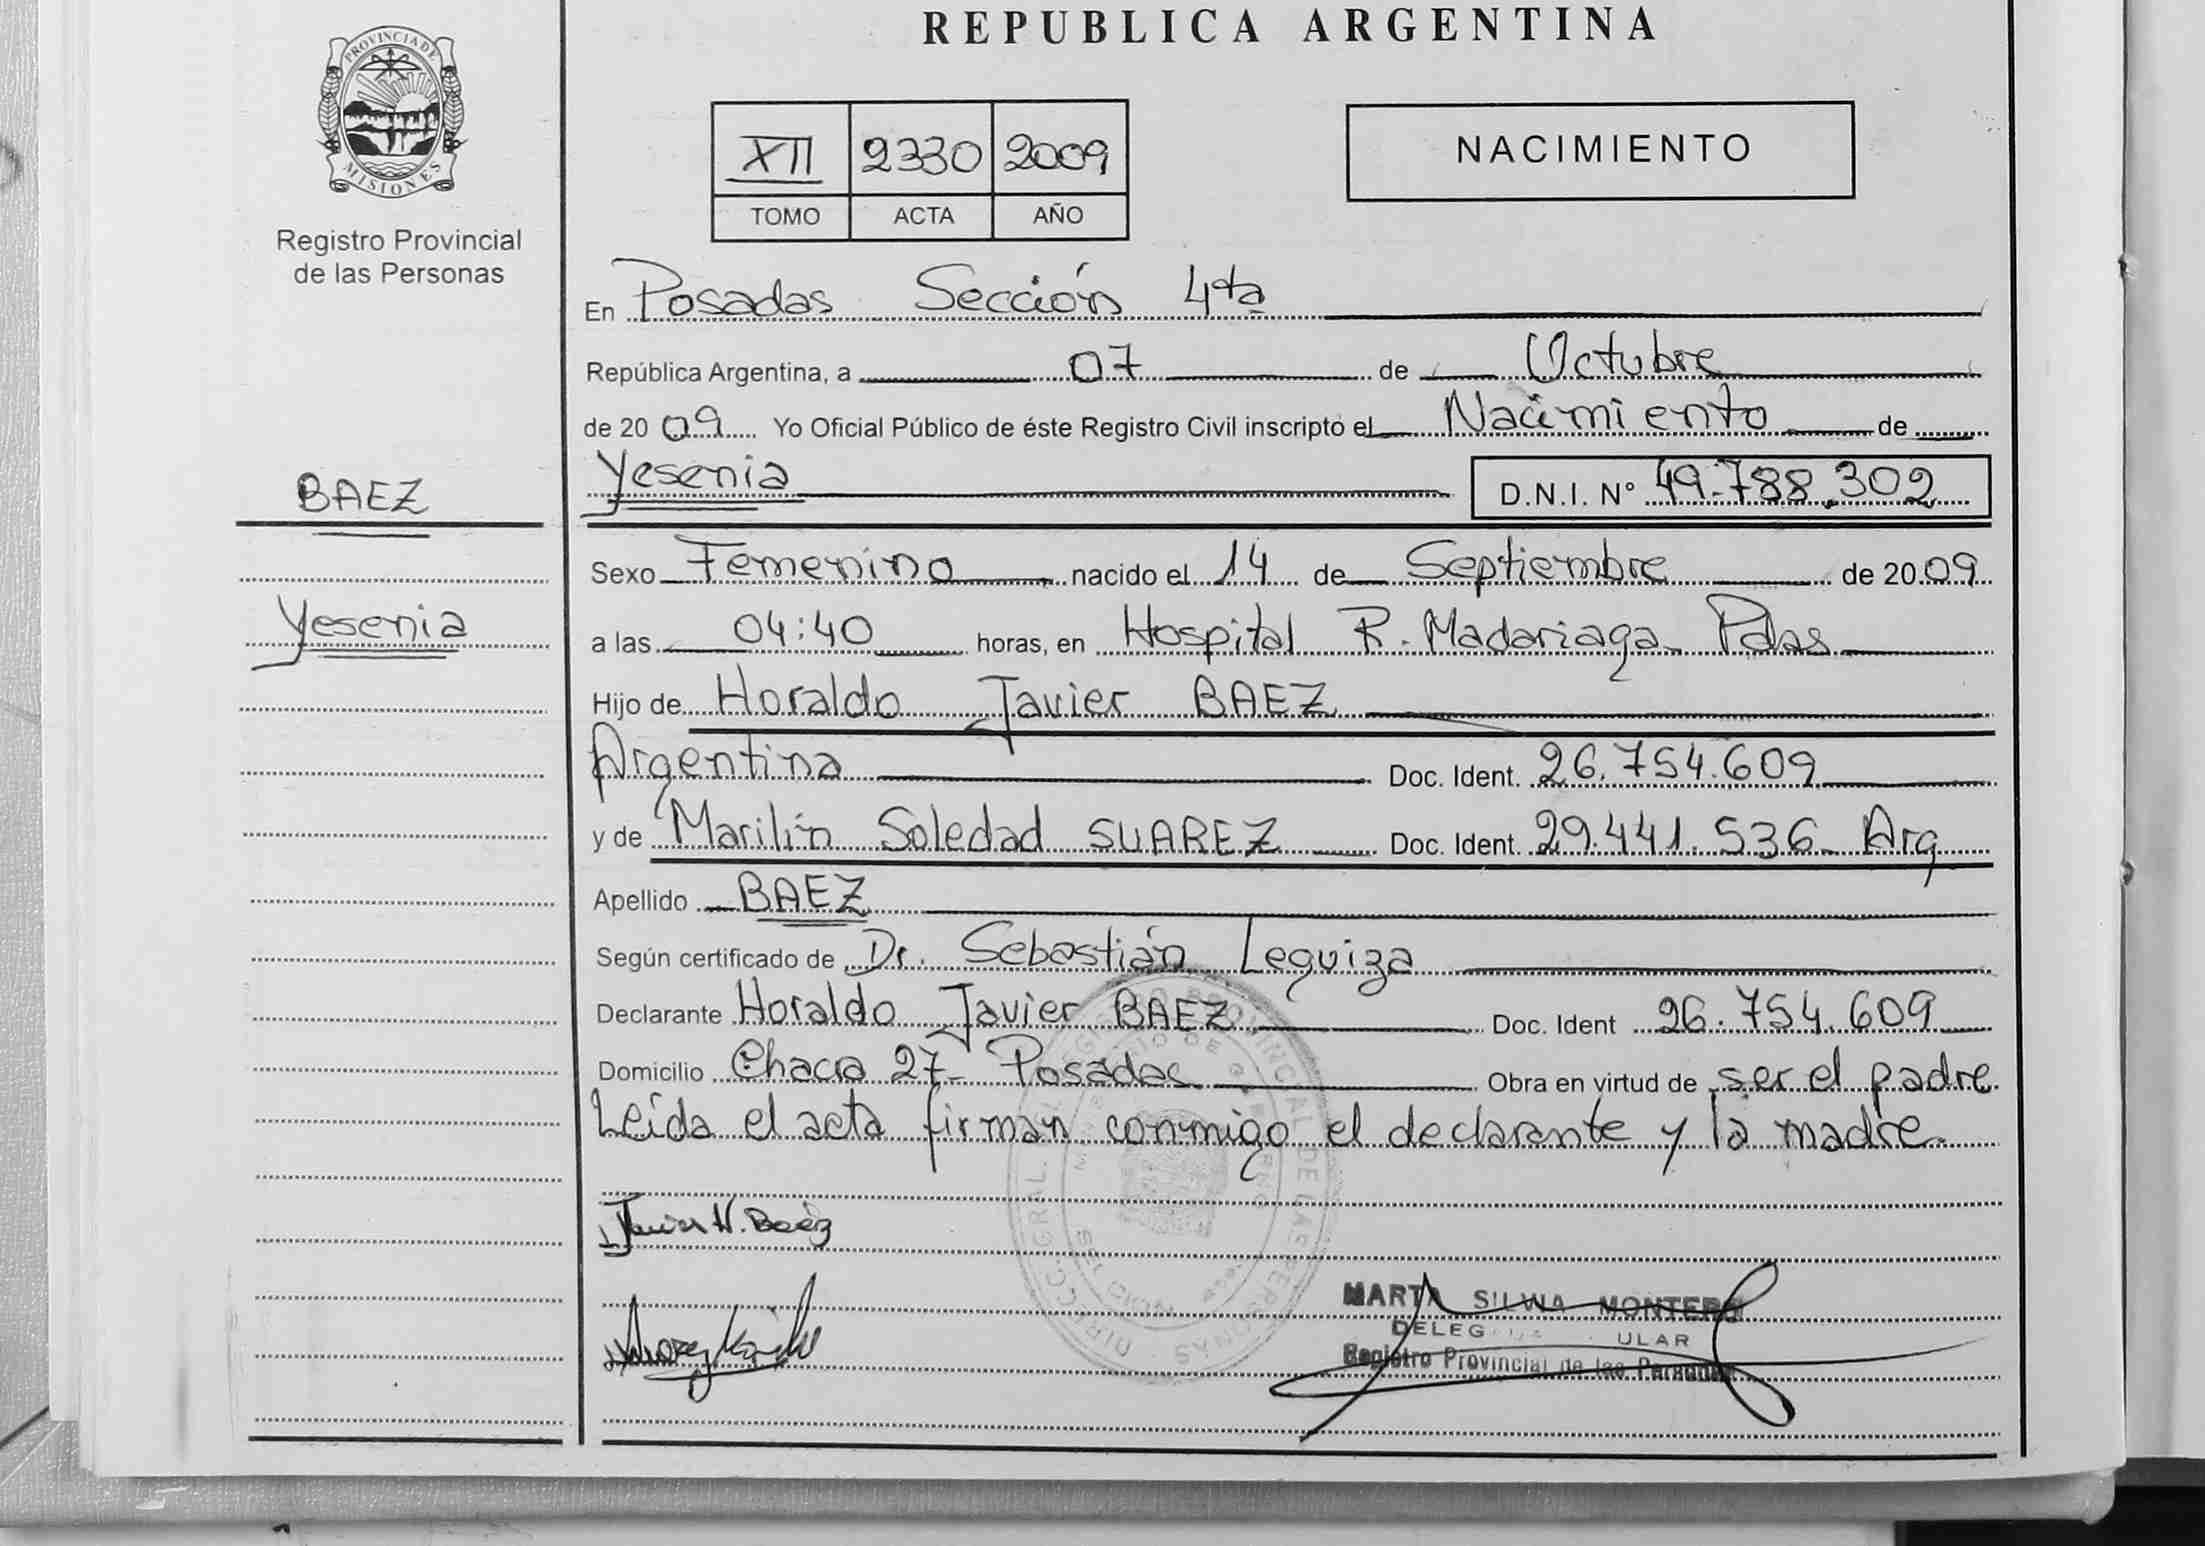 REPUBLICA ARGENTINA
PROVINCIA DE
MISIONES
Registro Provincial
de las Personas
XII 2330 2009
TOMO ACTA AÑO
NACIMIENTO
En Posadas Sección 4ta
República Argentina, a 07 de Octubre
de 20 09 Yo Oficial Público de éste Registro Civil inscripto el Nacimiento de
BAEZ
Yesenia D.N.I. N° 49.788.302
Sexo Femenino nacido el 14 de Septiembre de 20 09
Yesenia
a las 04:40 horas, en Hospital R. Madariaga - Pdas
Hijo de Horaldo Javier BAEZ
Argentina Doc. Ident. 26.754.609
y de Marilín Soledad SUAREZ Doc. Ident. 29.441.536 - Arg
Apellido BAEZ
Según certificado de Dr. Sebastián Leguiza
Declarante Horaldo Javier BAEZ Doc. Ident 26.754.609
Domicilio Chacra 27 - Posadas Obra en virtud de ser el padre
Leída el acta firman conmigo el declarante y la madre.
Javier H. Baez
MARTA SILVIA MONTERO
Registro Provincial de las Personas